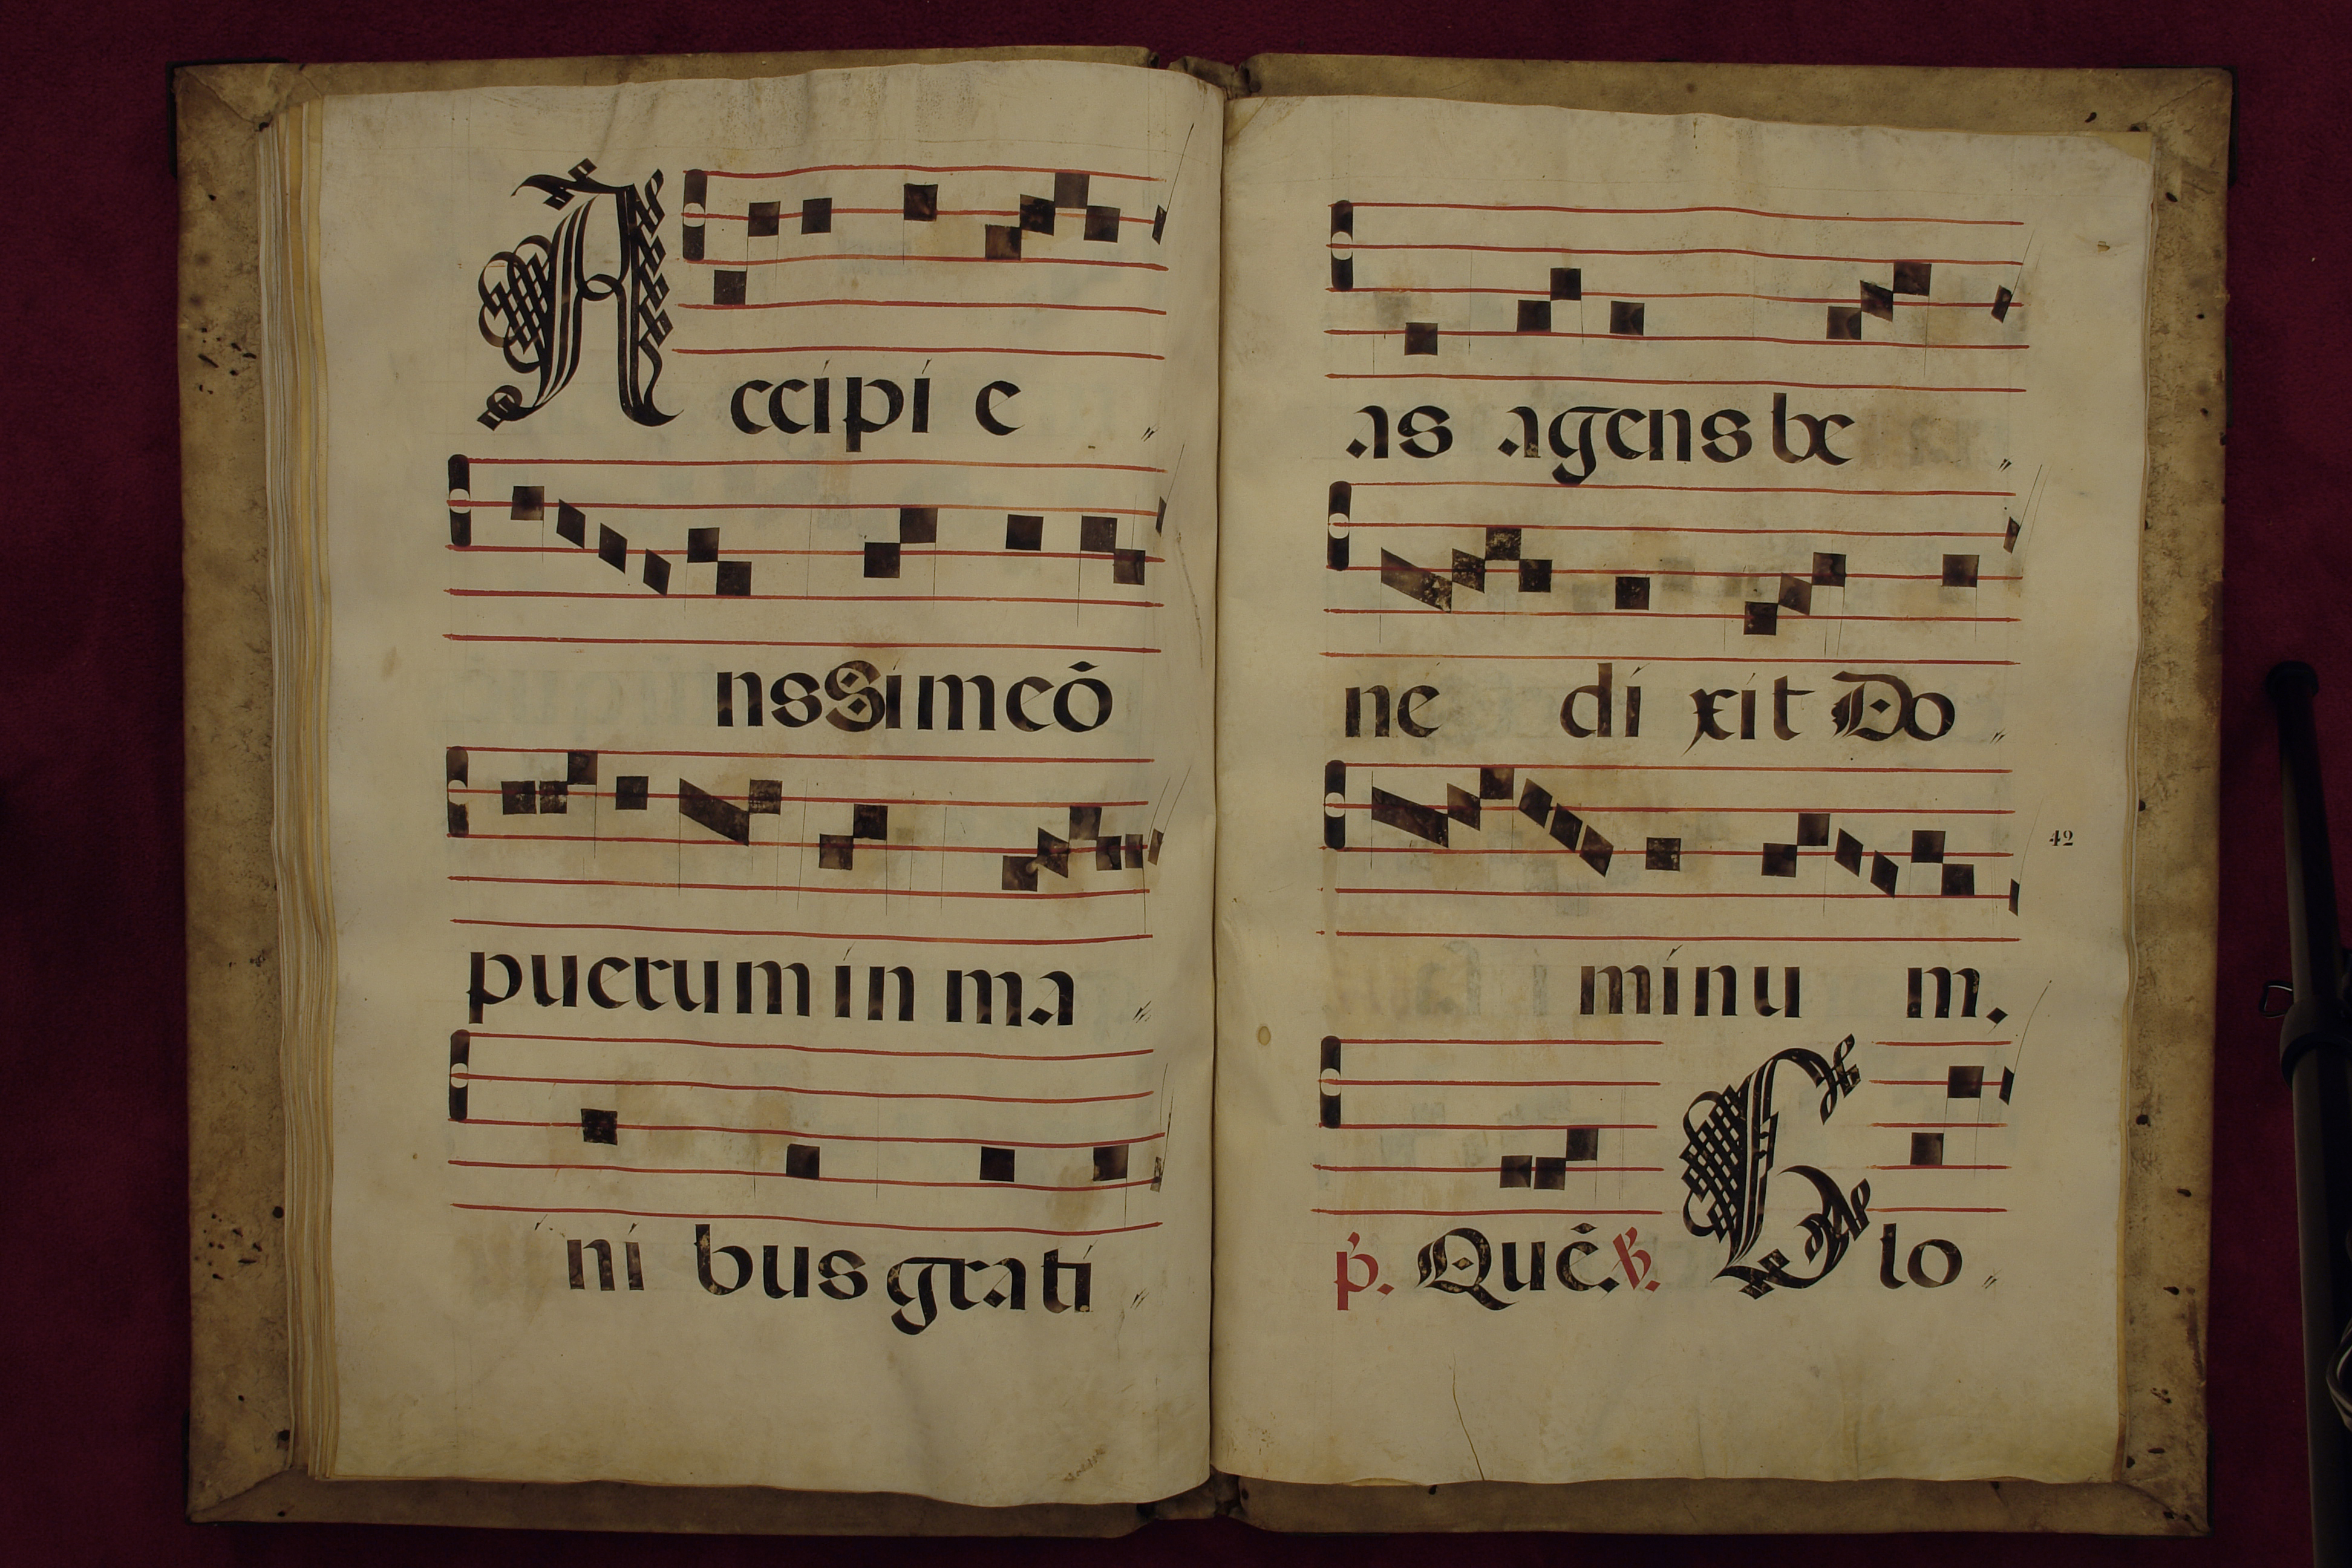 Accipi e
ns Simeō
puerum in ma
ni bus grati
as agens be
ne di xit Do
42
minu m.
p. Quē. V. Glo